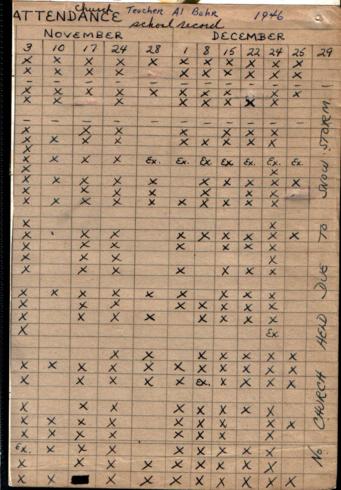 church Teacher Al Bahr 1946
ATTENDANCE school record
NOVEMBER DECEMBER
3 10 17 24 28 1 8 15 22 24 25 29
X X X X X X X X X X X
X X X X X X X X X X X
- - - - - - - - - - -
X X X X X X X X X X X
X X X X X X X X X
- - - - - - - - - - -
X X X X X X X
X X X X X X X X X X
X X
X X X X Ex. Ex. Ex. Ex. Ex. Ex. Ex.
X X
X X X X X X X X X X
X X X X X X X X
X X X X X X X X X X
X X
X X X X X X X X X
X X X X X X X
X X X X
X X X X X X X
X X X X X X X X X X
X X X X X X X X
X X X X X X X X
X Ex
X X X X X X X
X X X X X X X X X X X
X X X X X Ex. X X X X
X X X X X X X X
X X X X X X X X X
X X X X X X X X
Ex. X X X X X X X X
X X X X X X X X X
X X X X X X X X X X
No CHURCH HELD DUE TO SNOW STORM!